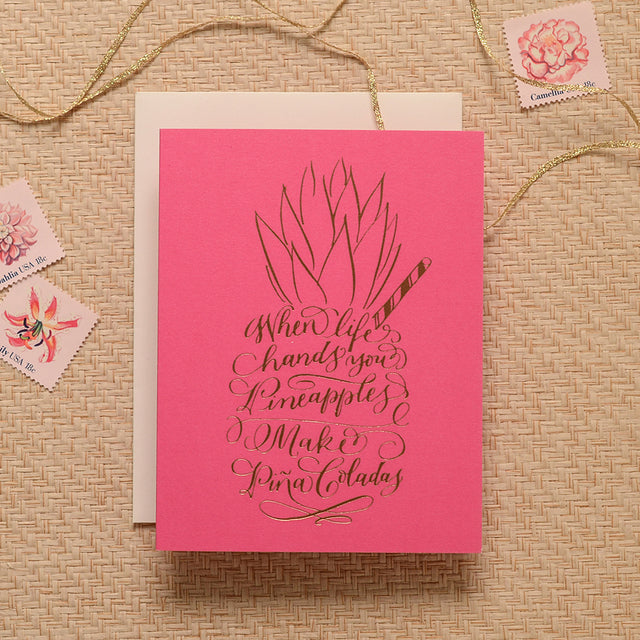 Camellia USA 18c
When life
hands you
Pineapples
Make
Piña Coladas
ahlia USA 18c
ily USA 18c